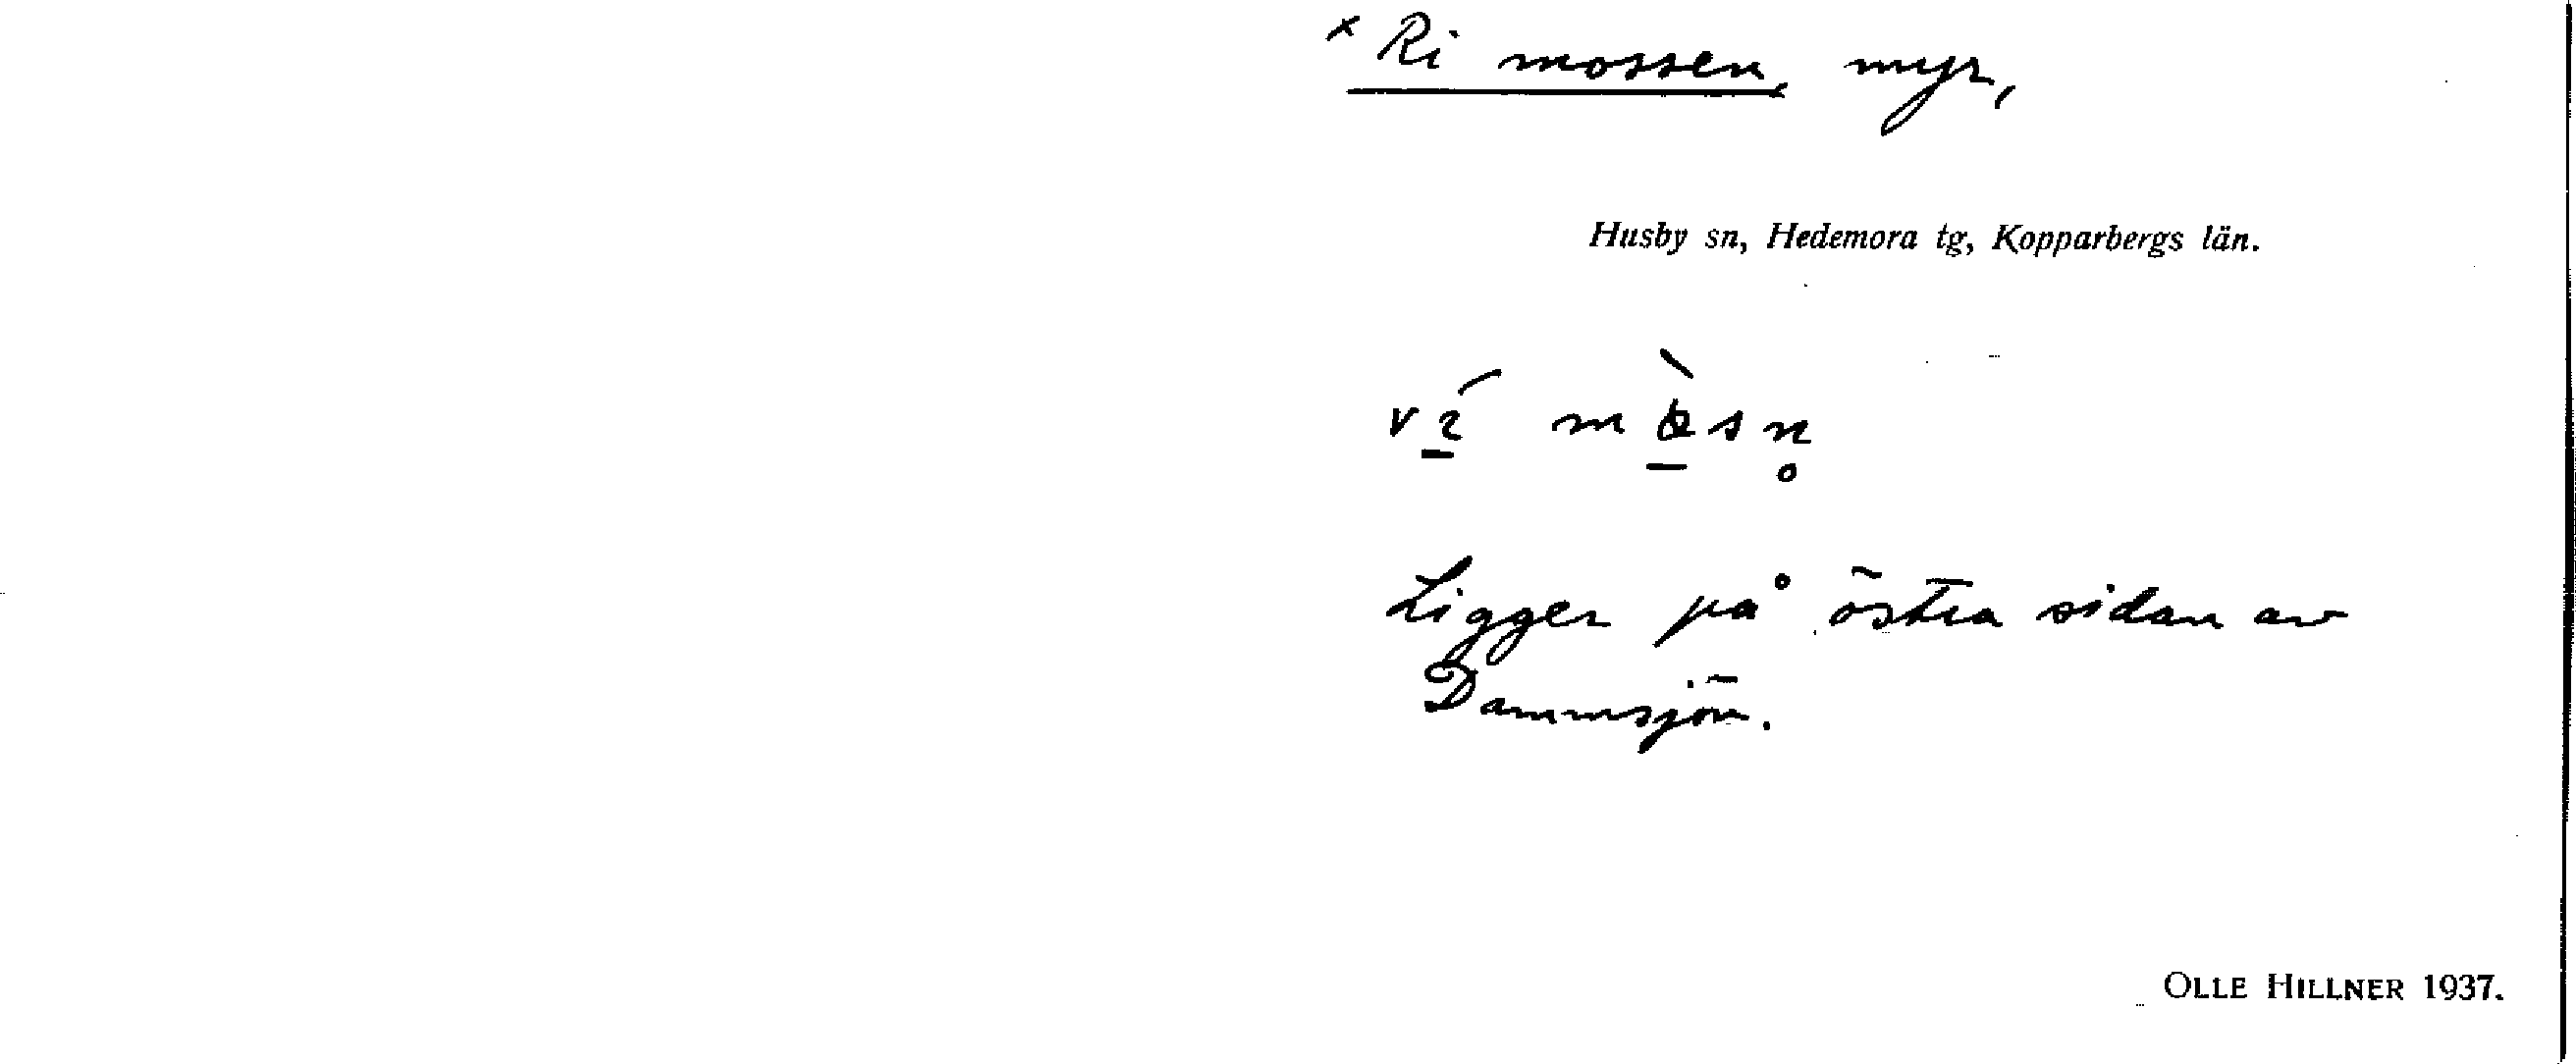 × Ri mossen, myr,
Husby sn, Hedemora tg, Kopparbergs län.
Ligger på östra sidan av
Dammsjön.
OLLE HILLNER 1937.